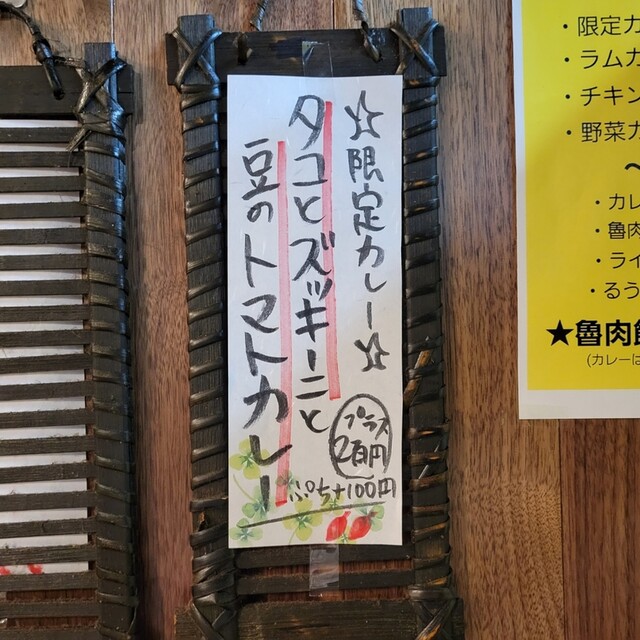 ☆限定カレー☆
タコとズッキーニと
豆のトマトカレー
プラス
2百円
ぷち+100円
・限定カ
・ラムカ
・チキン
・野菜カ
～
・カレ
・魯肉
・ライ
・るう
★魯肉飯
(カレーは